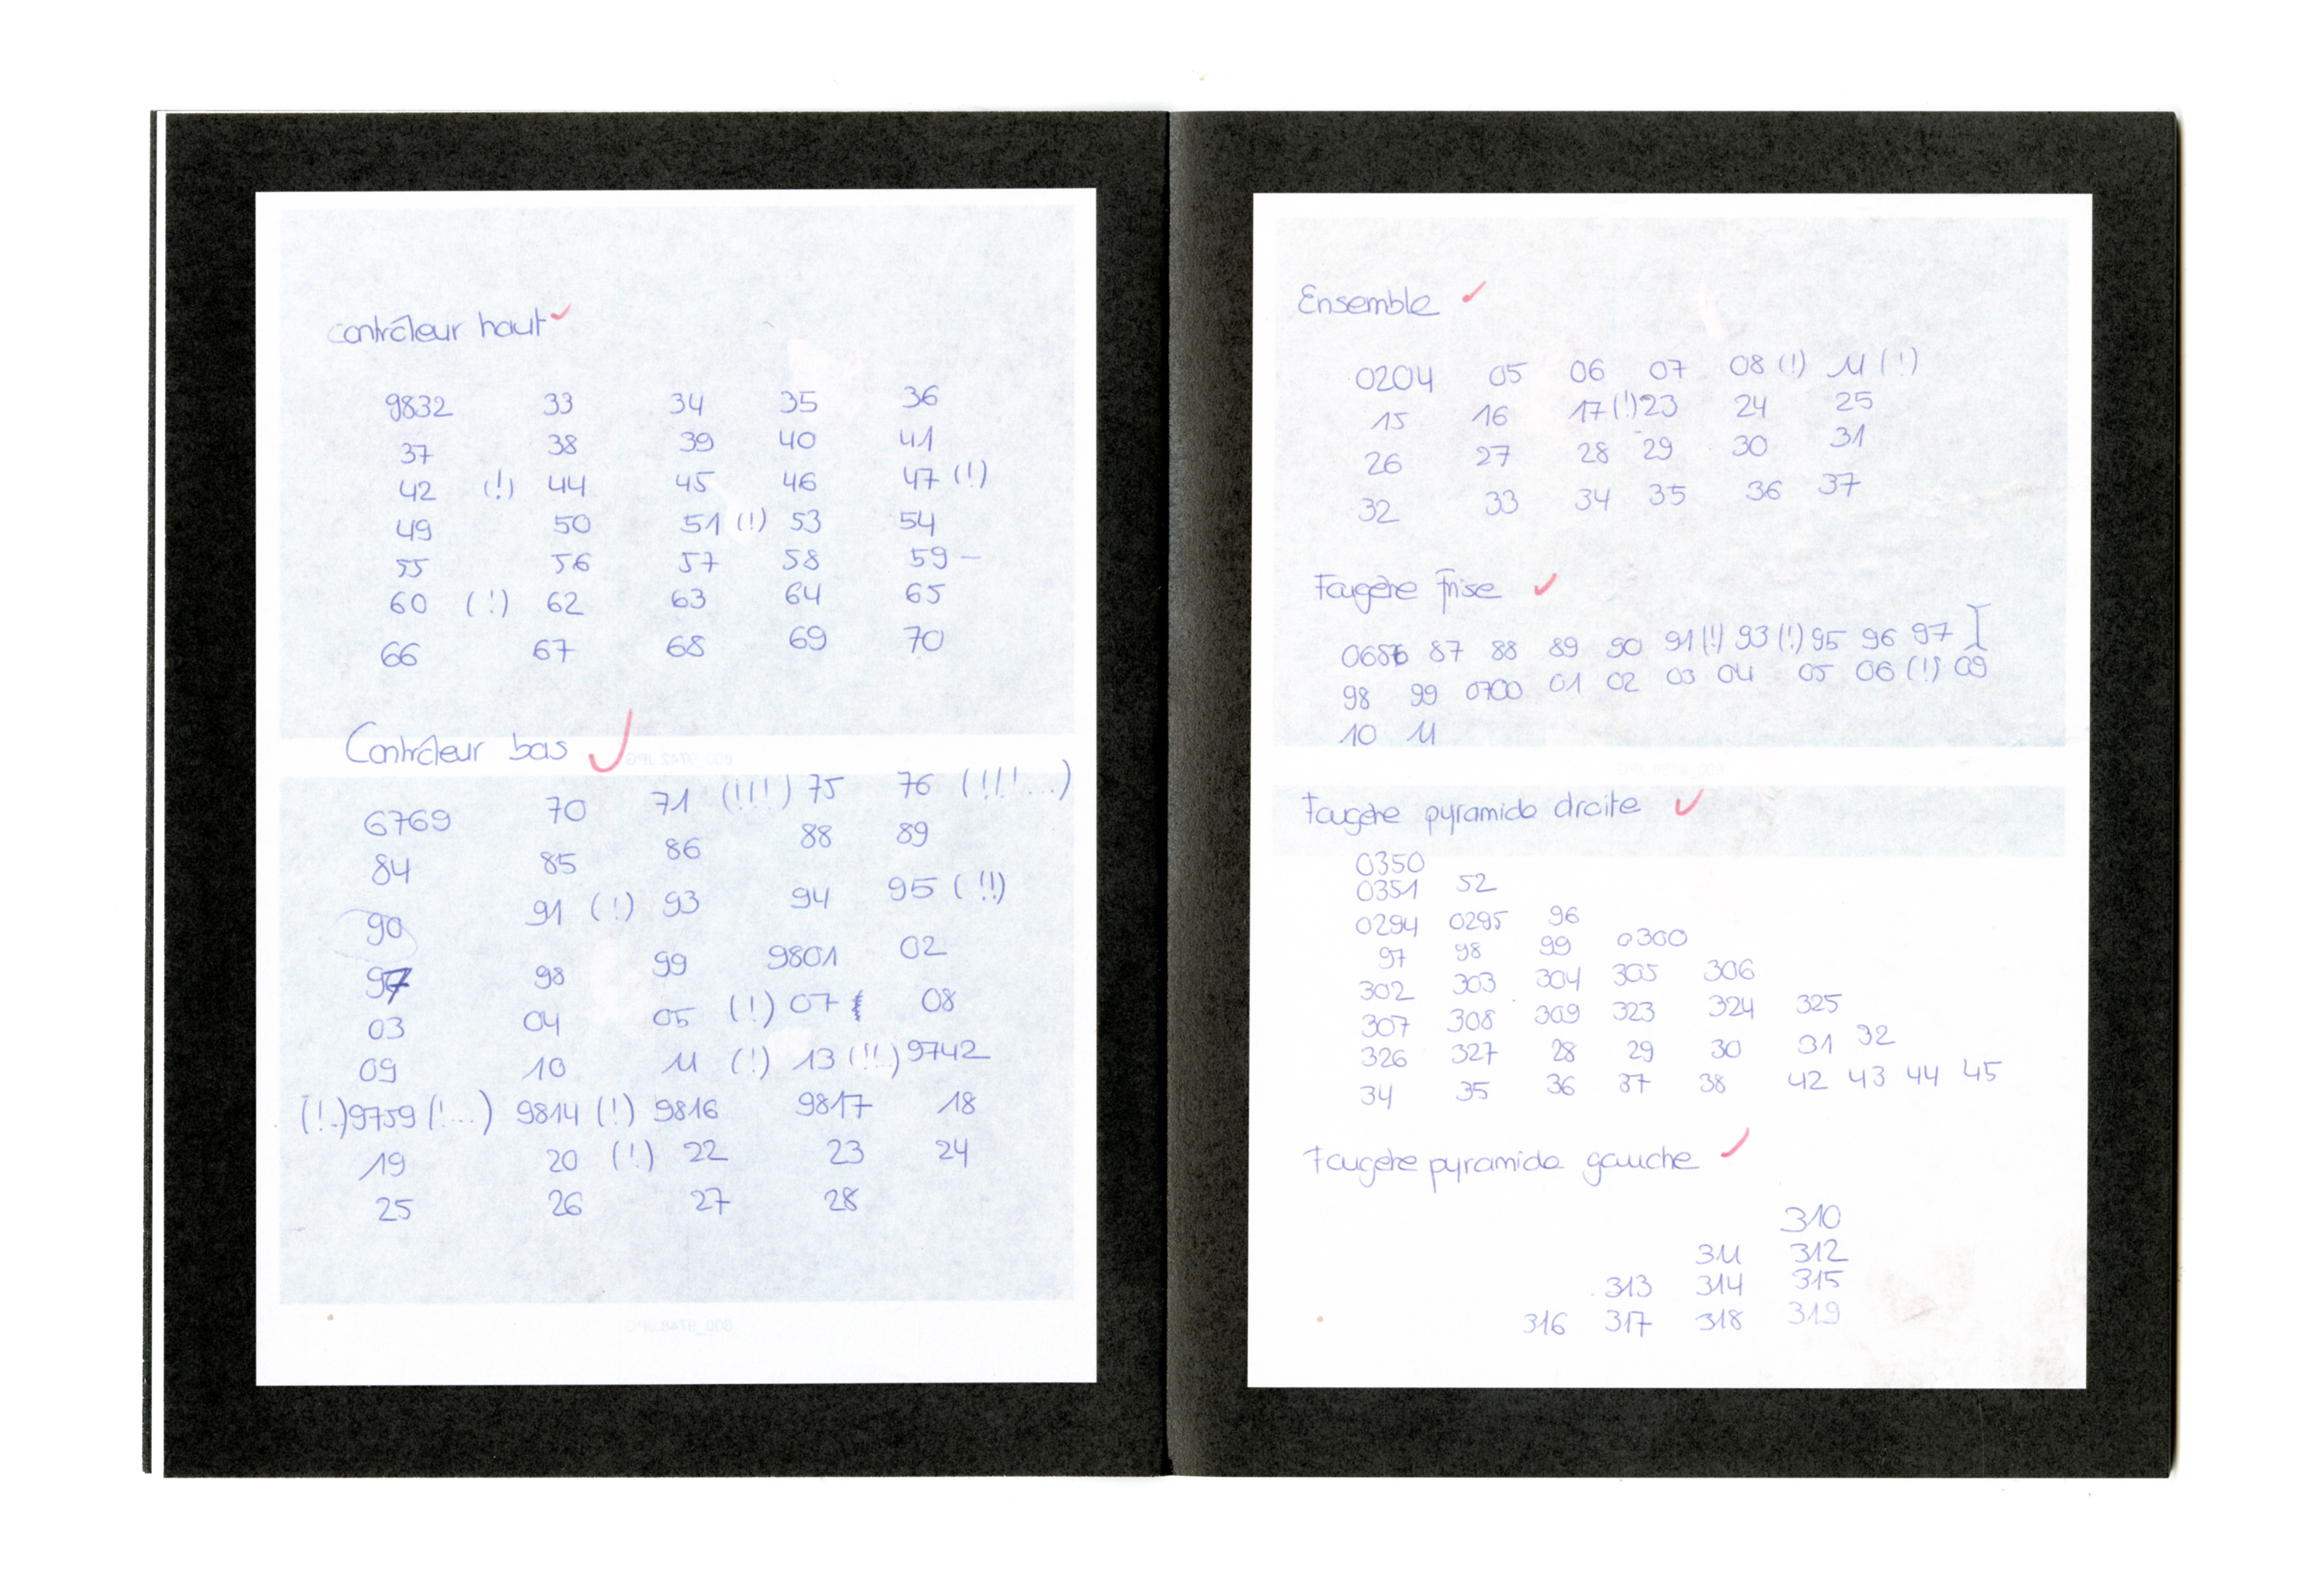 contrôleur haut
9832 33 34 35 36
37 38 39 40 41
42 (!) 44 45 46 47 (!)
49 50 51 (!) 53 54
55 56 57 58 59 –
60 (!) 62 63 64 65
66 67 68 69 70
Contrôleur bas
6769 70 71 (!!!) 75 76 (!!!...)
84 85 86 88 89
90 91 (!) 93 94 95 (!!)
97 98 99 9801 02
03 04 05 (!) 07 08
09 10 11 (!) 13 (!!) 9742
(!..) 9759 (!...) 9814 (!) 9816 9817 18
19 20 (!) 22 23 24
25 26 27 28
600_9742.JPG
600_9748.JPG
Ensemble
0204 05 06 07 08 (!) 11 (!)
15 16 17 (!) 23 24 25
26 27 28 29 30 31
32 33 34 35 36 37
Fougère frise
0686 87 88 89 90 91 (!) 93 (!) 95 96 97
98 99 0700 01 02 03 04 05 06 (!) 09
10 11
Fougère pyramide droite
0350
0351 52
0294 0295 96
97 98 99 0300
302 303 304 305 306
307 308 309 323 324 325
326 327 28 29 30 31 32
34 35 36 37 38 42 43 44 45
Fougère pyramide gauche
310
311 312
313 314 315
316 317 318 319